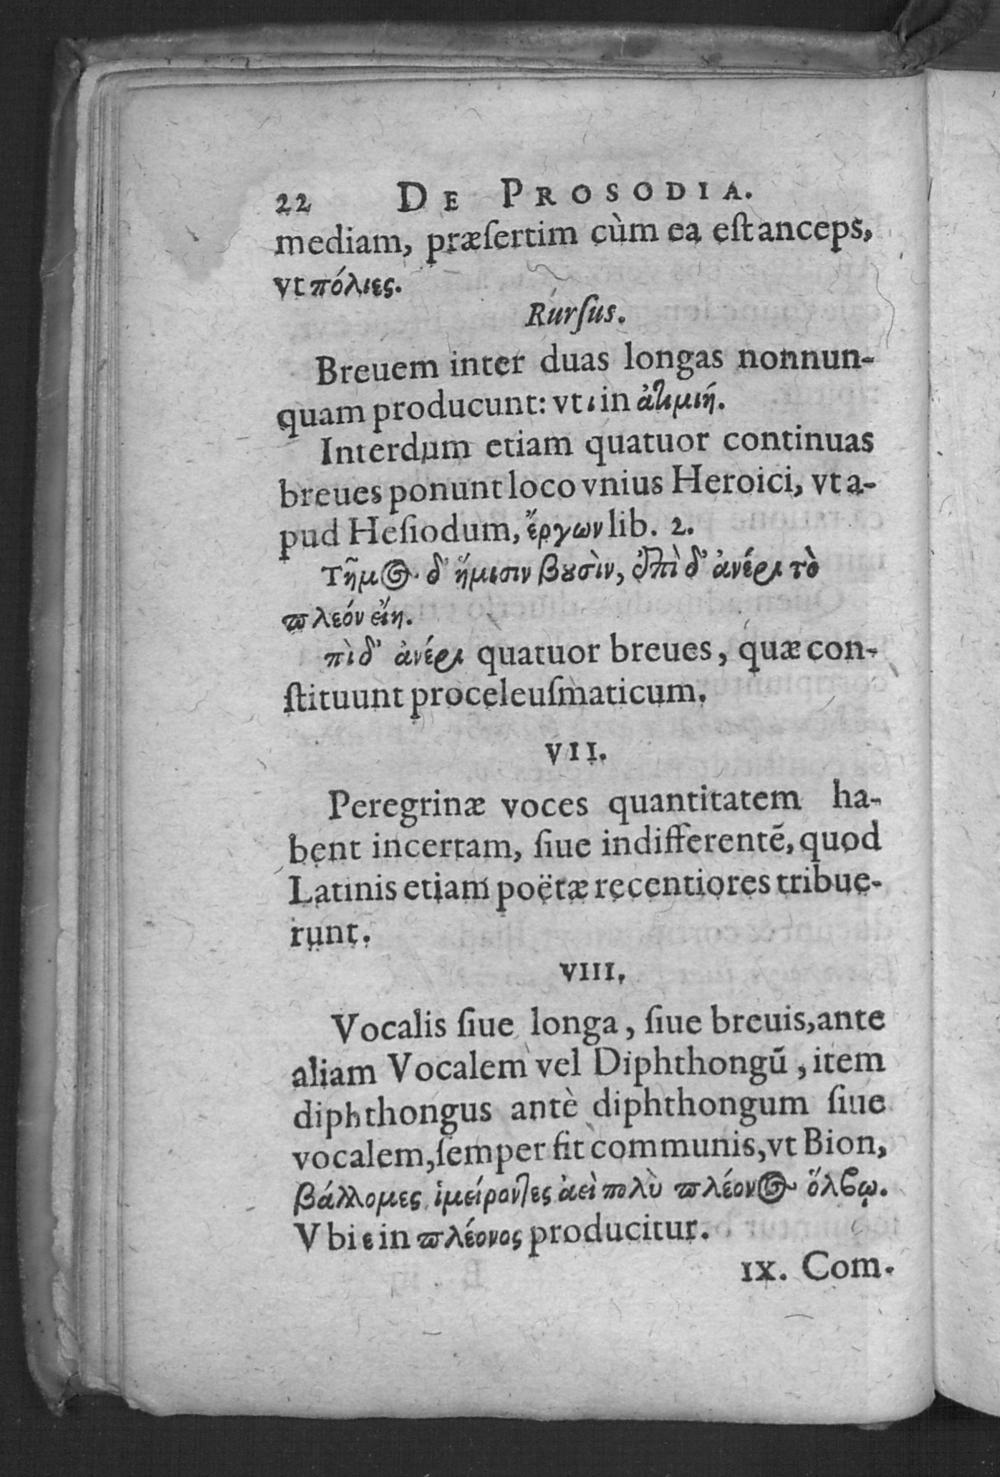 22 DE PROSODIA.
mediam, præſertim cùm ea eſt anceps,
vt πόλιες.
Rurſus.
Breuem inter duas longas nonnun-
quam producunt: vt ι in ἀτιμιή.
Interdum etiam quatuor continuas
breues ponunt loco vnius Heroici, vt a-
pud Heſiodum, ἔργων lib. 2.
Τῆμος δ' ἥμισιν βουσὶν, ἐπὶ δ' ἀνέρι τὸ
πλεόν εἴη.
πὶ δ' ἀνέρι quatuor breues, quæ con-
ſtituunt proceleuſmaticum.
VII.
Peregrinæ voces quantitatem ha-
bent incertam, ſiue indifferentē, quod
Latinis etiam poëtæ recentiores tribue-
runt.
VIII.
Vocalis ſiue longa, ſiue breuis, ante
aliam Vocalem vel Diphthongū, item
diphthongus antè diphthongum ſiue
vocalem, ſemper fit communis, vt Bion,
βάλλομες ἱμείροντες ἀεὶ πολὺ πλέονος ὄλβῳ.
Vbi ε in πλέονος producitur.
IX. Com-